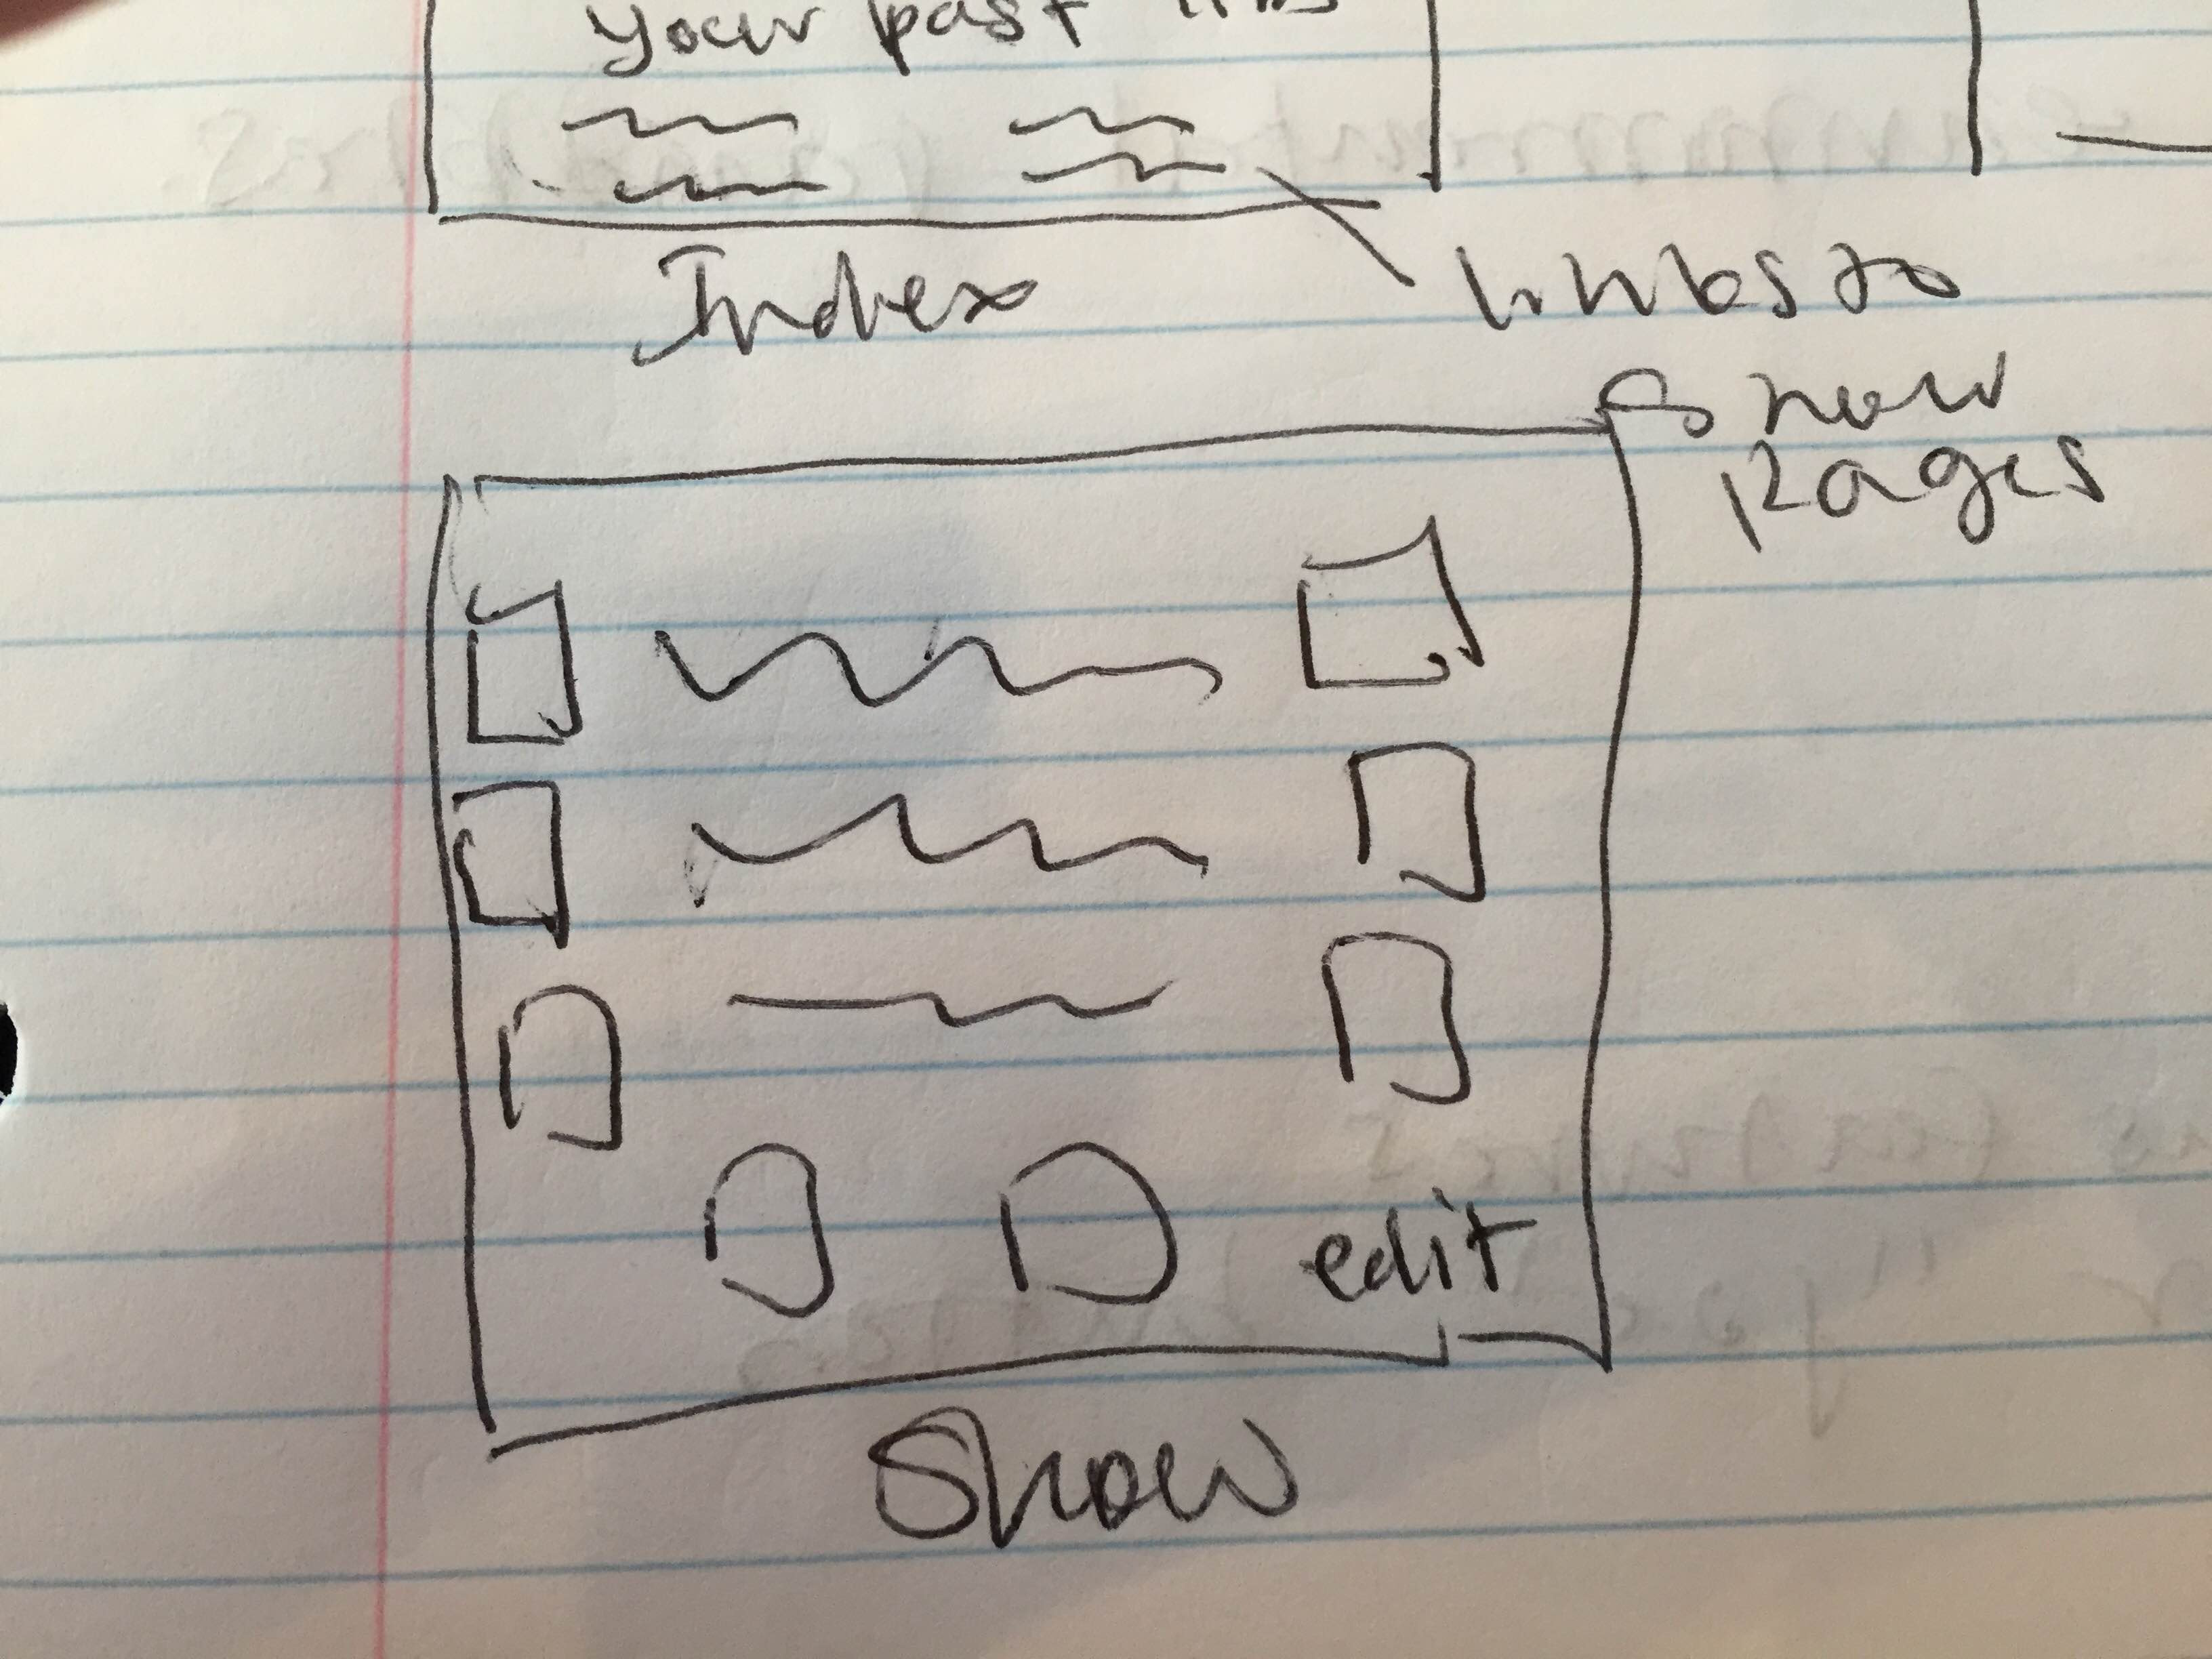 your past
Index
links to
show
pages
edit
Show